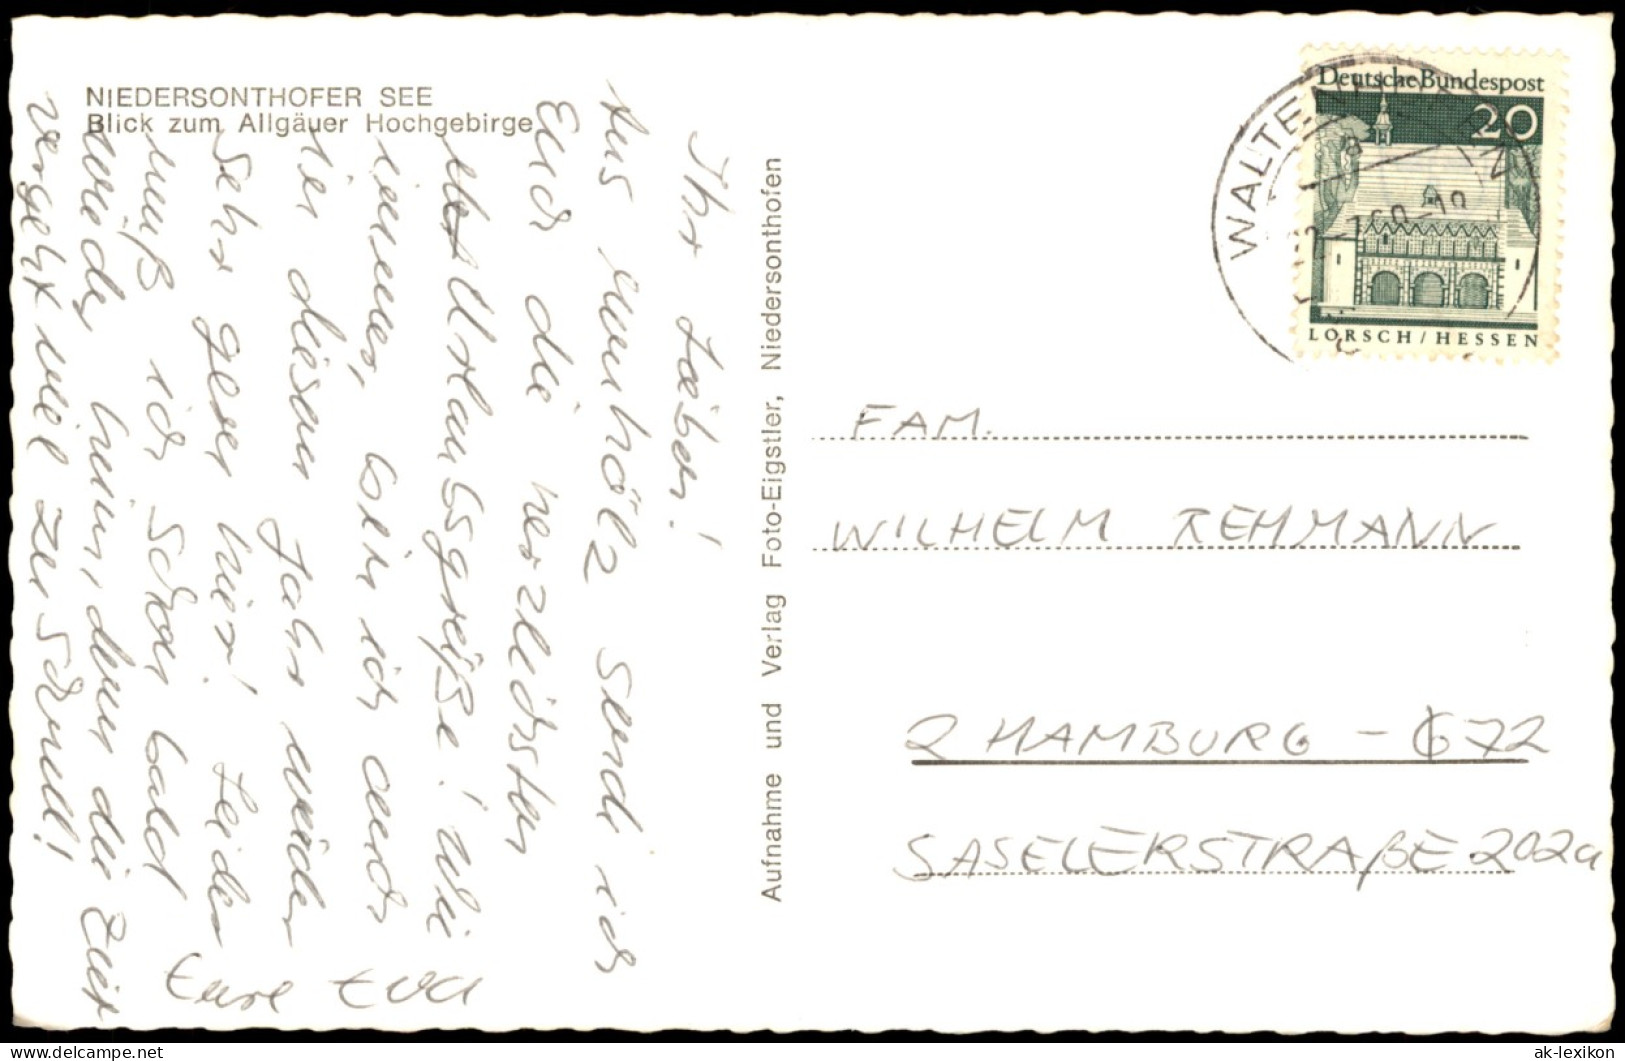 NIEDERSONTHOFER SEE
Blick zum Allgäuer Hochgebirge
Ihr Lieben!
Aus Memhölz sende ich
Euch die herzlichsten
Urlaubsgrüße! Wie
immer, bin ich auch
dieses Jahr wieder
sehr gern hier! Leider
muß ich schon bald
wieder heim, denn die Zeit
vergeht viel zu schnell!
Eure Eva
Aufnahme und Verlag Foto-Eigstler, Niedersonthofen
Deutsche Bundespost
20
LORSCH/HESSEN
FAM.
WILHELM REHMANN
2 HAMBURG - 72
SASELERSTRAßE 202a
ak-lexikon